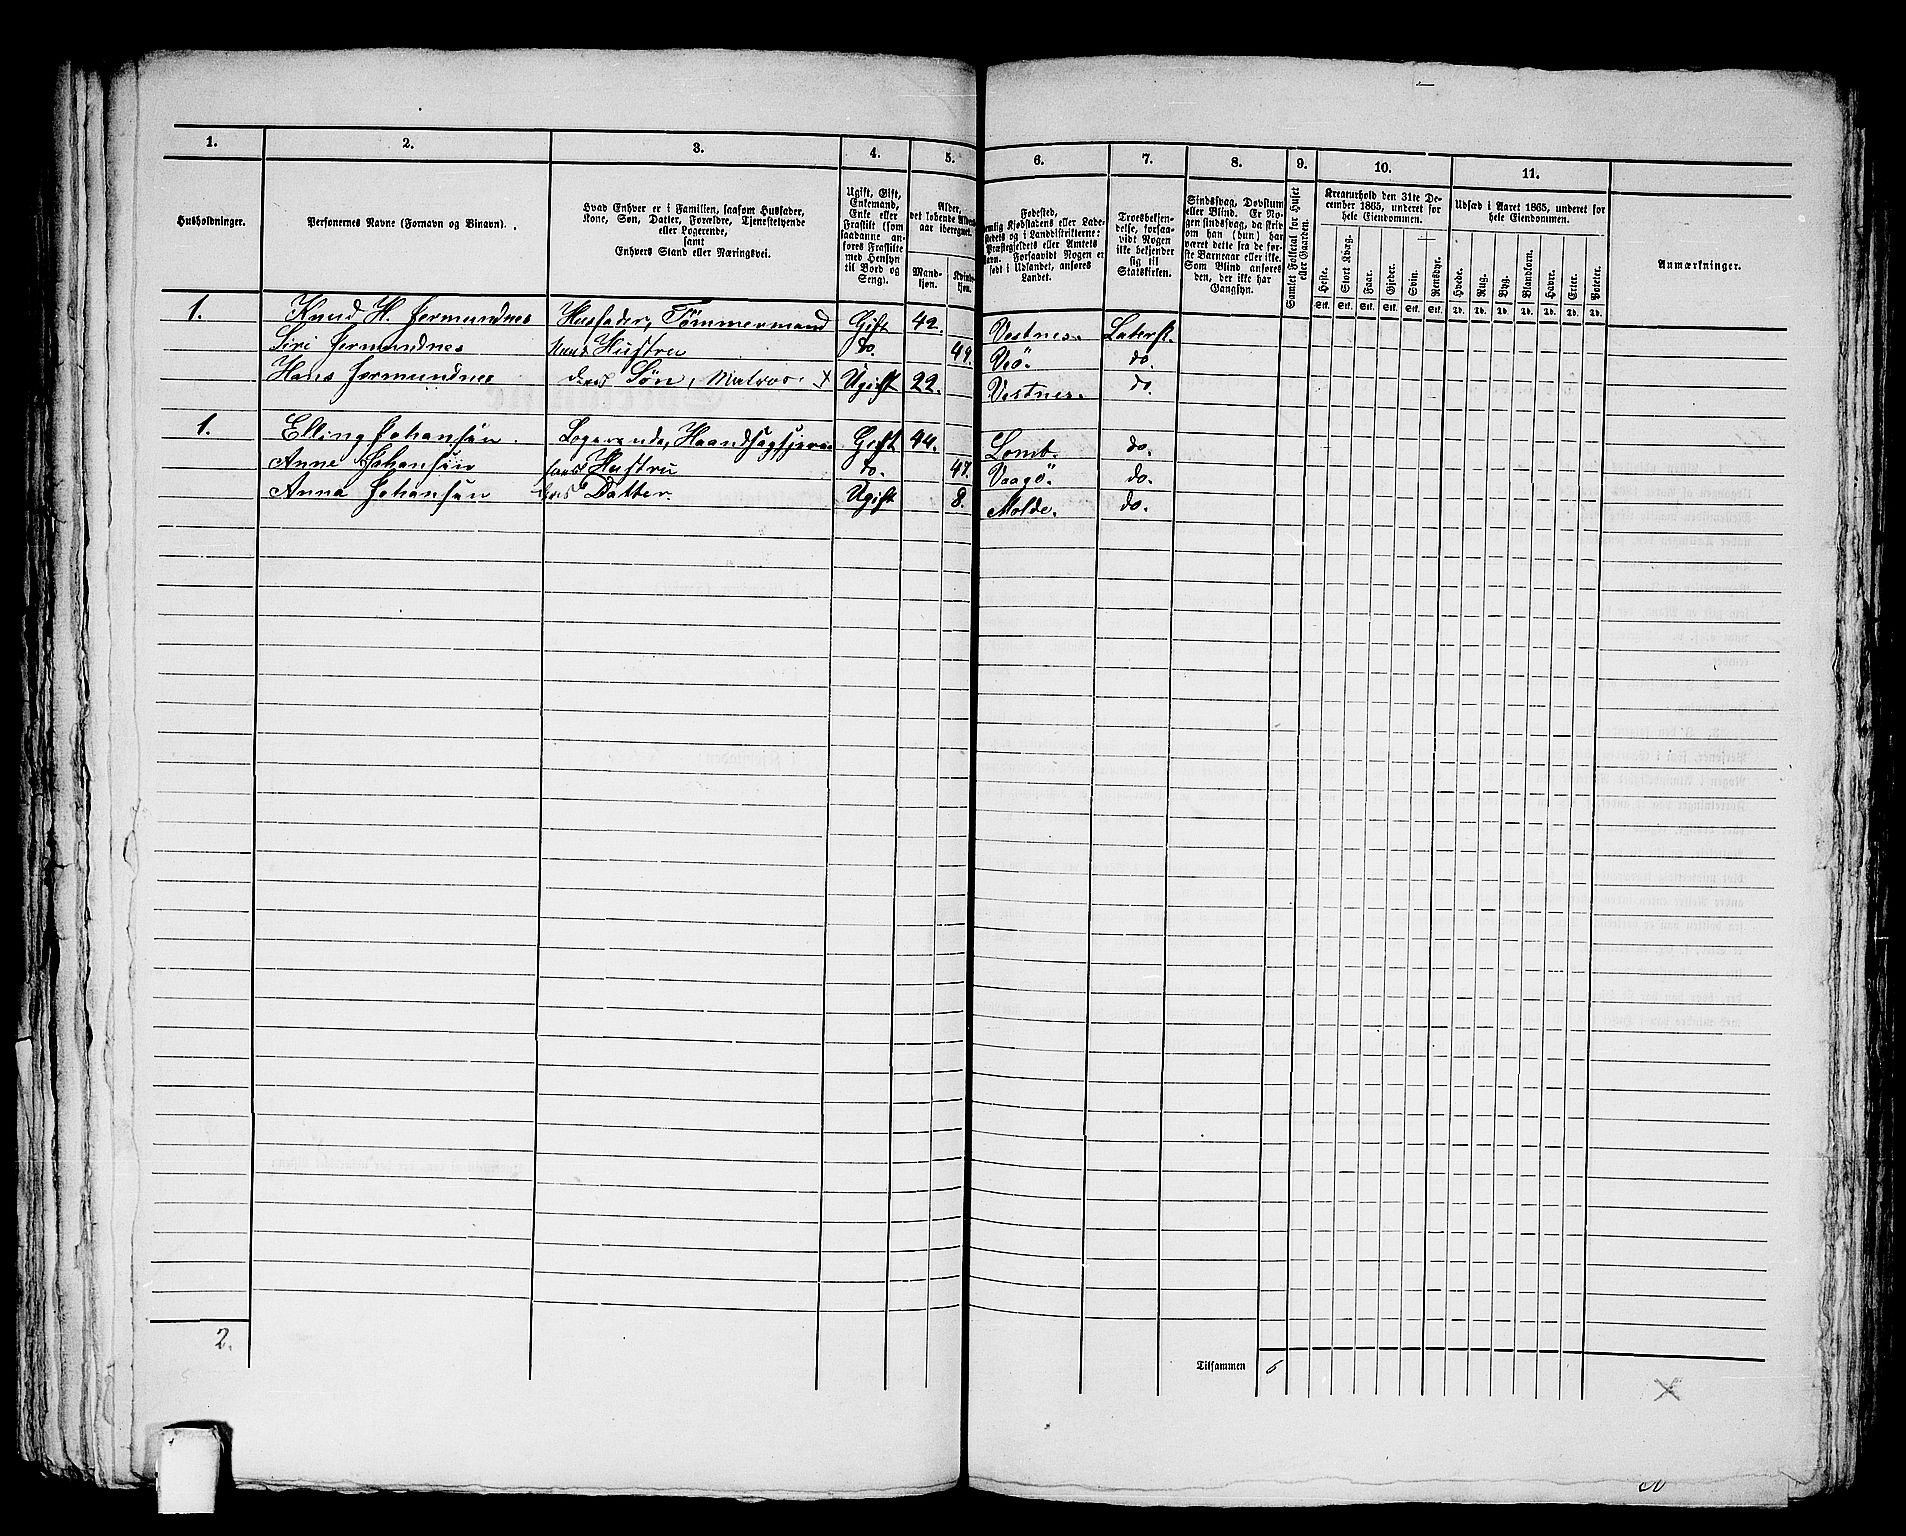 1. 2. 3. 4. 5. 6. 7. 8. 9. 10. 11.
Husholdninger.
Personernes Navne (Fornavn og Binavn).
Hvad Enhver er i Familien, saasom Husfader,
Kone, Søn, Datter, Forældre, Tjenestetyende
eller Logerende,
samt
Enhvers Stand eller Næringsvei.
Ugift, Gift,
Enkemand,
Enke eller
Fraskilt (som
saadanne an-
føres Fraskilte
med Hensyn
til Bord og
Seng).
Alder,
det løbende Alders-
aar iberegnet.
Mand-
kjøn.
Kvinde-
kjøn.
Fødested,
nemlig Kjøbstadens eller Lade-
stedets og i Landdistrikterne:
Præstegjeldets eller Amtets
Navn. Forsaavidt Nogen er
født i Udlandet, anføres
Landet.
Troesbekjen-
delse, forsaa-
vidt Nogen
ikke bekjender
sig til
Statskirken.
Sindssvag, Døvstum
eller Blind. Er No-
gen sindssvag, da skriv
om han (hun) har
været dette fra de før-
ste Barneaar eller ikke.
Som Blind anføres
den, der ikke har
Gangsyn.
Samlet Folketal for Huset
eller Gaarden.
Kreaturhold den 31te De-
cember 1865, underet for
hele Eiendommen.
Heste. Stort Kvæg. Faar. Gjeder. Svin. Rensdyr.
Stk. Stk. Stk. Stk. Stk. Stk.
Udsæd i Aaret 1865, underet for
hele Eiendommen.
Hvede. Rug. Byg. Blandkorn. Havre. Erter. Poteter.
Td. Td. Td. Td. Td. Td. Td.
Anmærkninger.
1. Knud H. Hermundnes Husfader, Tømmermand Gift 42. Vestnes. Lutersk.
Siri Hermundnes hans Hustru do. 49. Veø. do.
Hans Hermundnes deres Søn, Matros x Ugift 22. Vestnes. do.
1. Elling Johansen Logerende, Gift 44. Lomb. do.
Anne Johansen hans Hustru do. 47. Vaagø. do.
Anna Johansen deres Datter. Ugift 8. Molde. do.
2.
Tilsammen 6